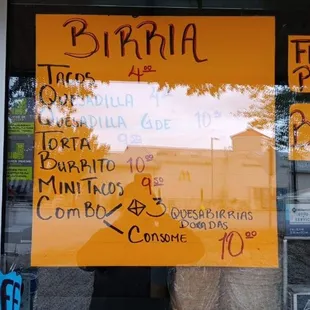 BIRRIA
TACOS 4.00
QUESADILLA
QUESADILLA GDE 10
TORTA 9.50
BURRITO 10.00
MINI TACOS 9.50
COMBO 3 QUESABIRRIAS
DORADAS
CONSOME 10.00